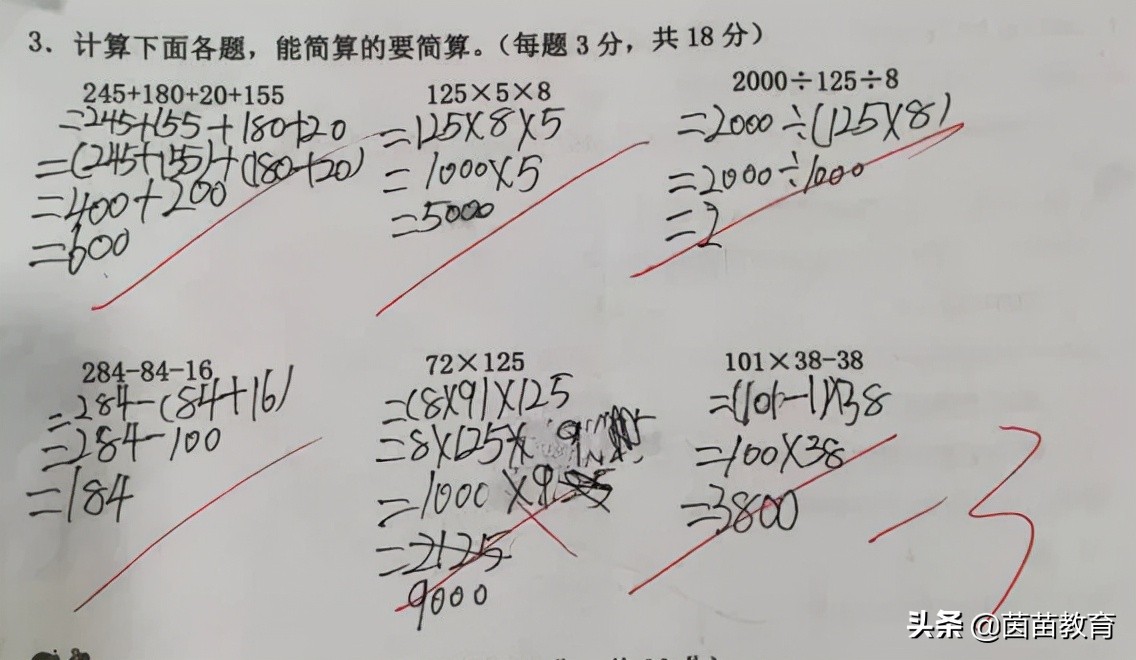 3. 计算下面各题，能简算的要简算。（每题3分，共18分）
245+180+20+155
=245+155+180+20
=(245+155)+(180+20)
=400+200
=600
125×5×8
=125×8×5
=1000×5
=5000
2000÷125÷8
=2000÷(125×8)
=2000÷1000
=2
284-84-16
=284-(84+16)
=284-100
=184
72×125
=(8×9)×125
=8×125×9
=1000×9
=2125
9000
101×38-38
=(101-1)×38
=100×38
=3800
-3
头条 @茵苗教育